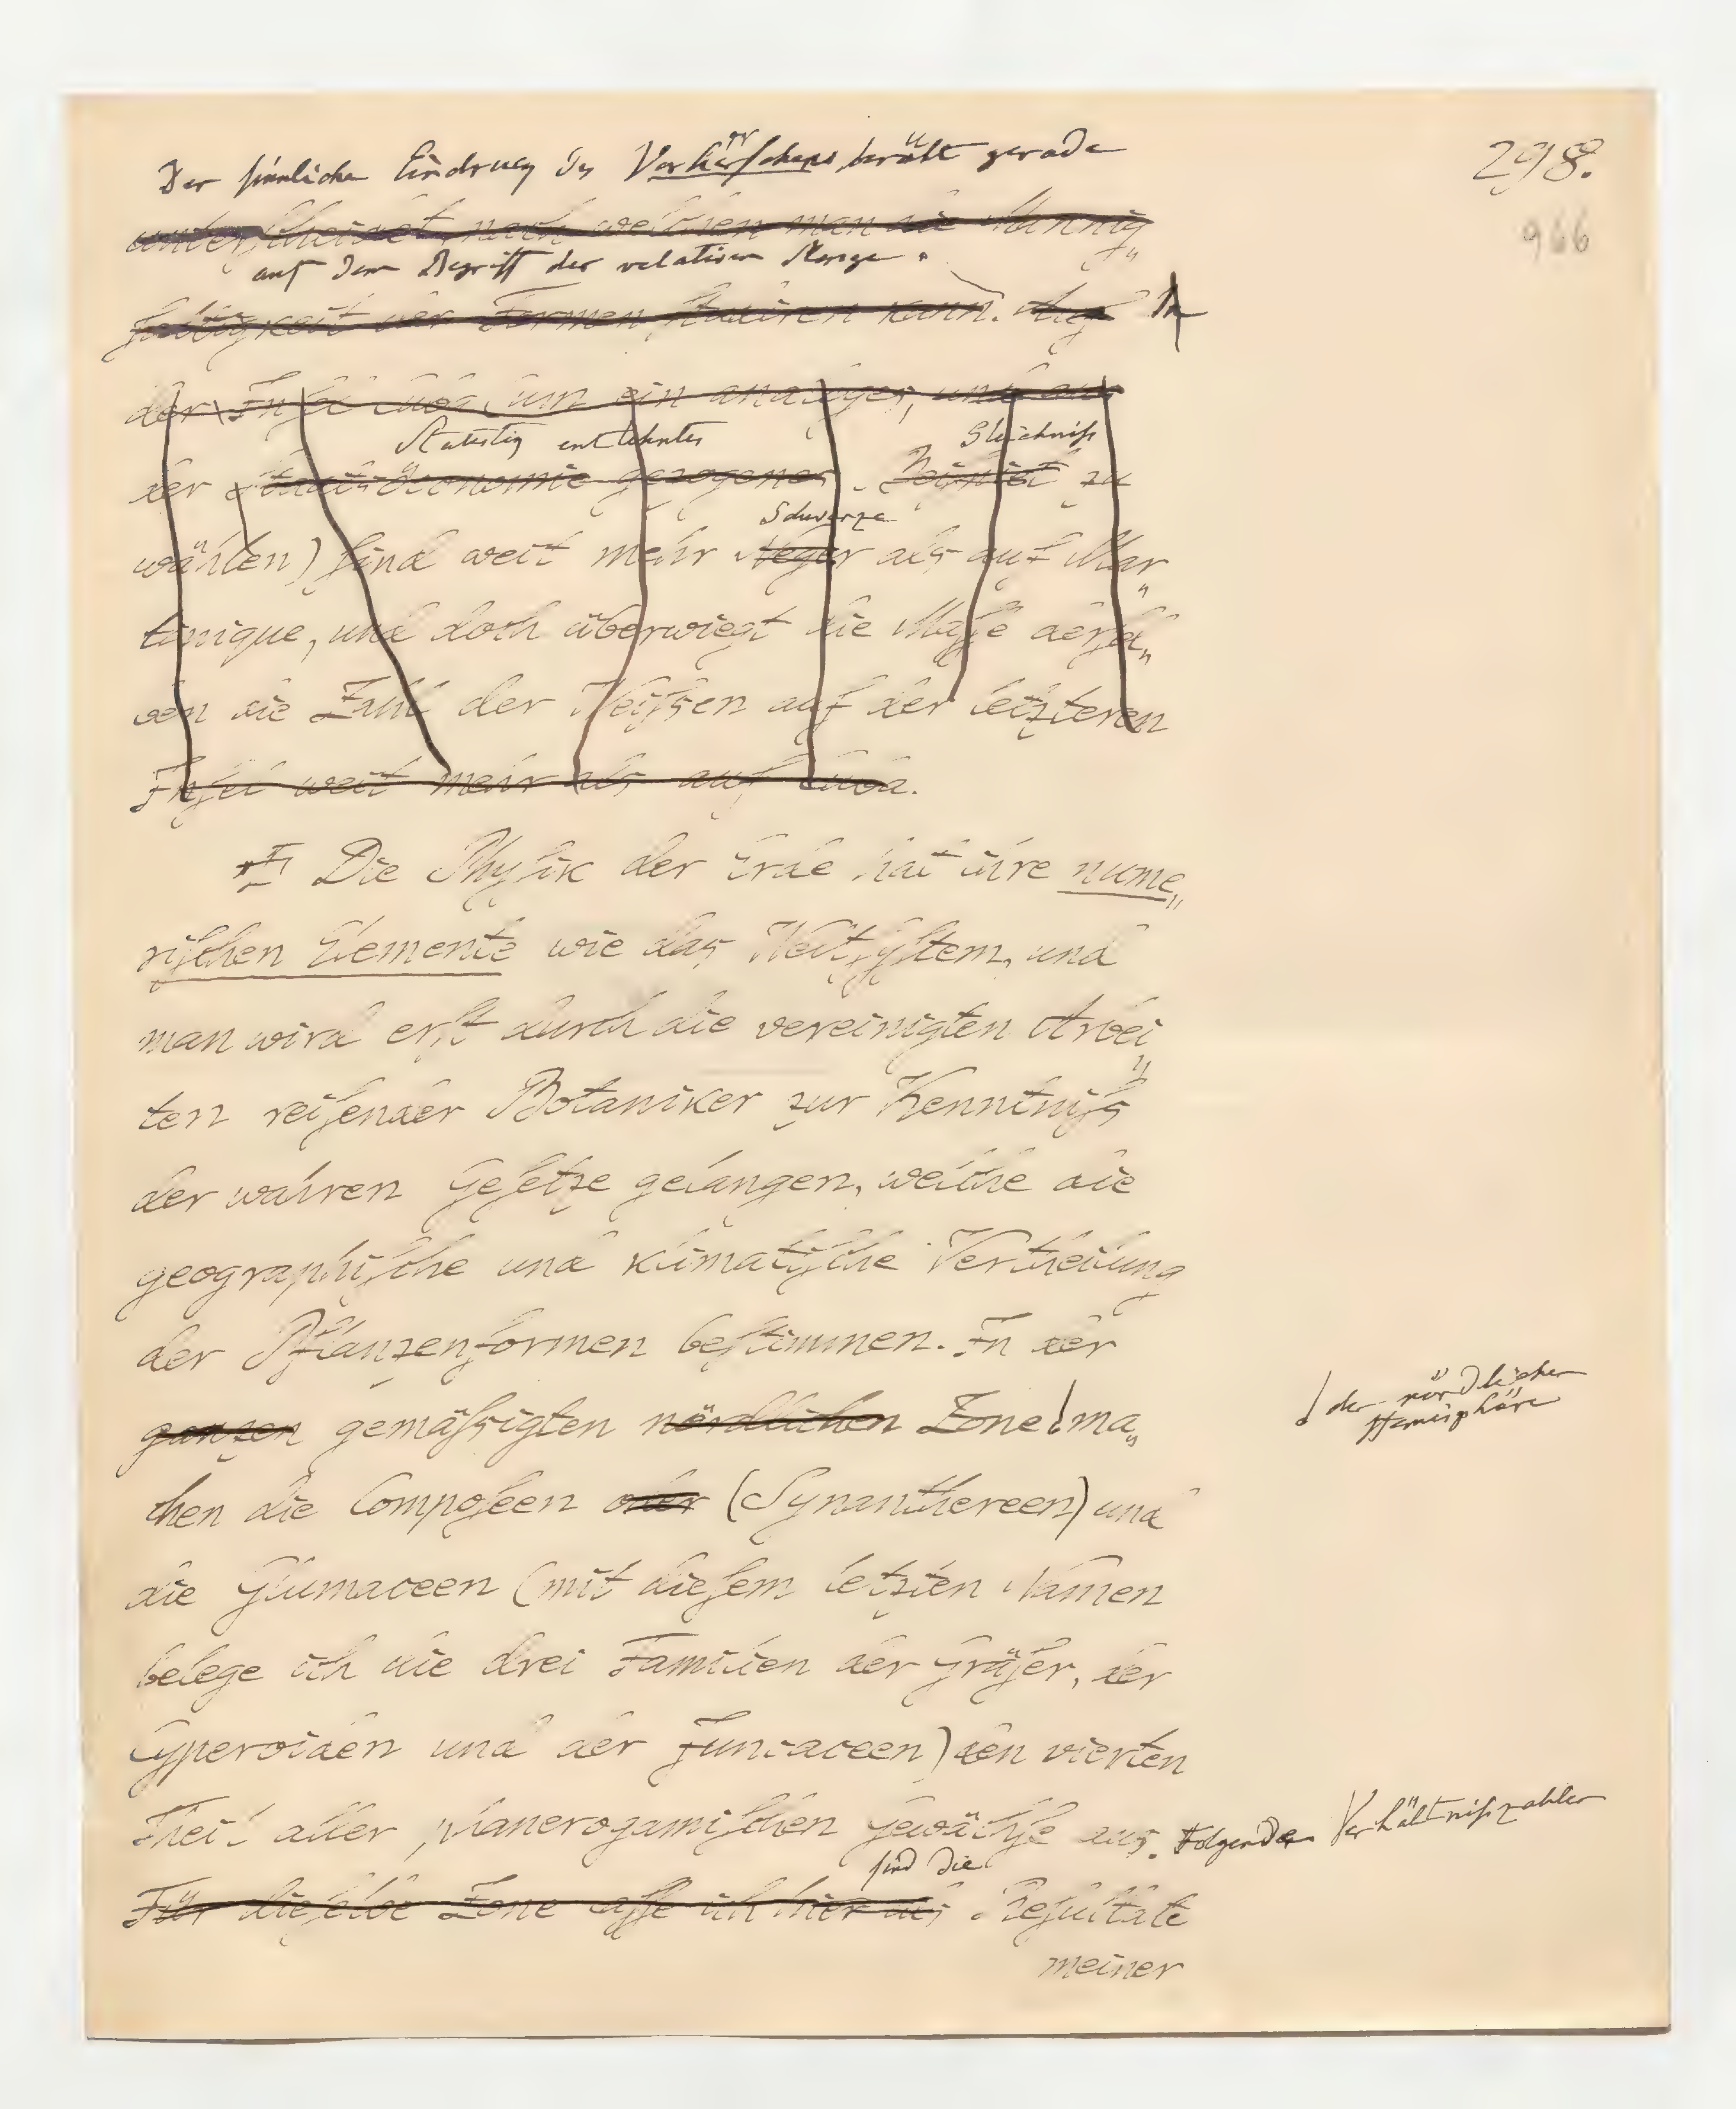 298.
966
Der sinnliche Eindruck des Vorherrschens beruht gerade
unterscheidet, nach welchen man die Mannig„
auf dem Begriff der relativen Menge.
faltigkeit der Formen studiren kann. Auf
der Insel Cuba (um ein analoges, und aus
Statistik entlehntes Gleichniß
der Staats-Öconomie gezogenes Beispiel zu
Schwarze
wählen) sind weit mehr Neger als auf Mar„
tinique, und doch überwiegt die Masse dersel„
ben die Zahl der Weißen auf der letzteren
Insel weit mehr als auf Cuba.
Die Physik der Erde hat ihre nume„
rischen Elemente wie das Weltsystem, und
man wird erst durch die vereinigten Arbei„
ten reisender Botaniker zur Kenntniß
der wahren Gesetze gelangen, welche die
geographische und klimatische Vertheilung
der Pflanzenformen bestimmen. In der
ganzen gemäßigten nördlichen Zone ma„
der nördlichen
Hemisphäre
chen die Composeen oder (Synanthereen) und
die Glumaceen (mit diesem letzten Namen
belege ich die drei Familien der Gräser, der
Cyperoiden und der Juncaceen) den vierten
Theil aller phanerogamischen Gewächse aus. Folgende Verhältnißzahlen
sind die
Für dieselbe Zone ich hier als Resultate
meiner